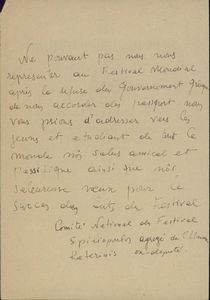 Ne pouvant pas nous nous
représenter au Festival Mondial
après le refus du Gouvernement Grèque
de nous accorder des passeport nous
vous prions d'adresser vers les
jeuns et etudiant de tout le
monde nôs salus amical et
passifique ainsi que nôs
saleureuse voeux pour le
succès des buts du Festival
Comité National du Festival
Spiliopoulos agregé de l'
Katerinis ex-deputé